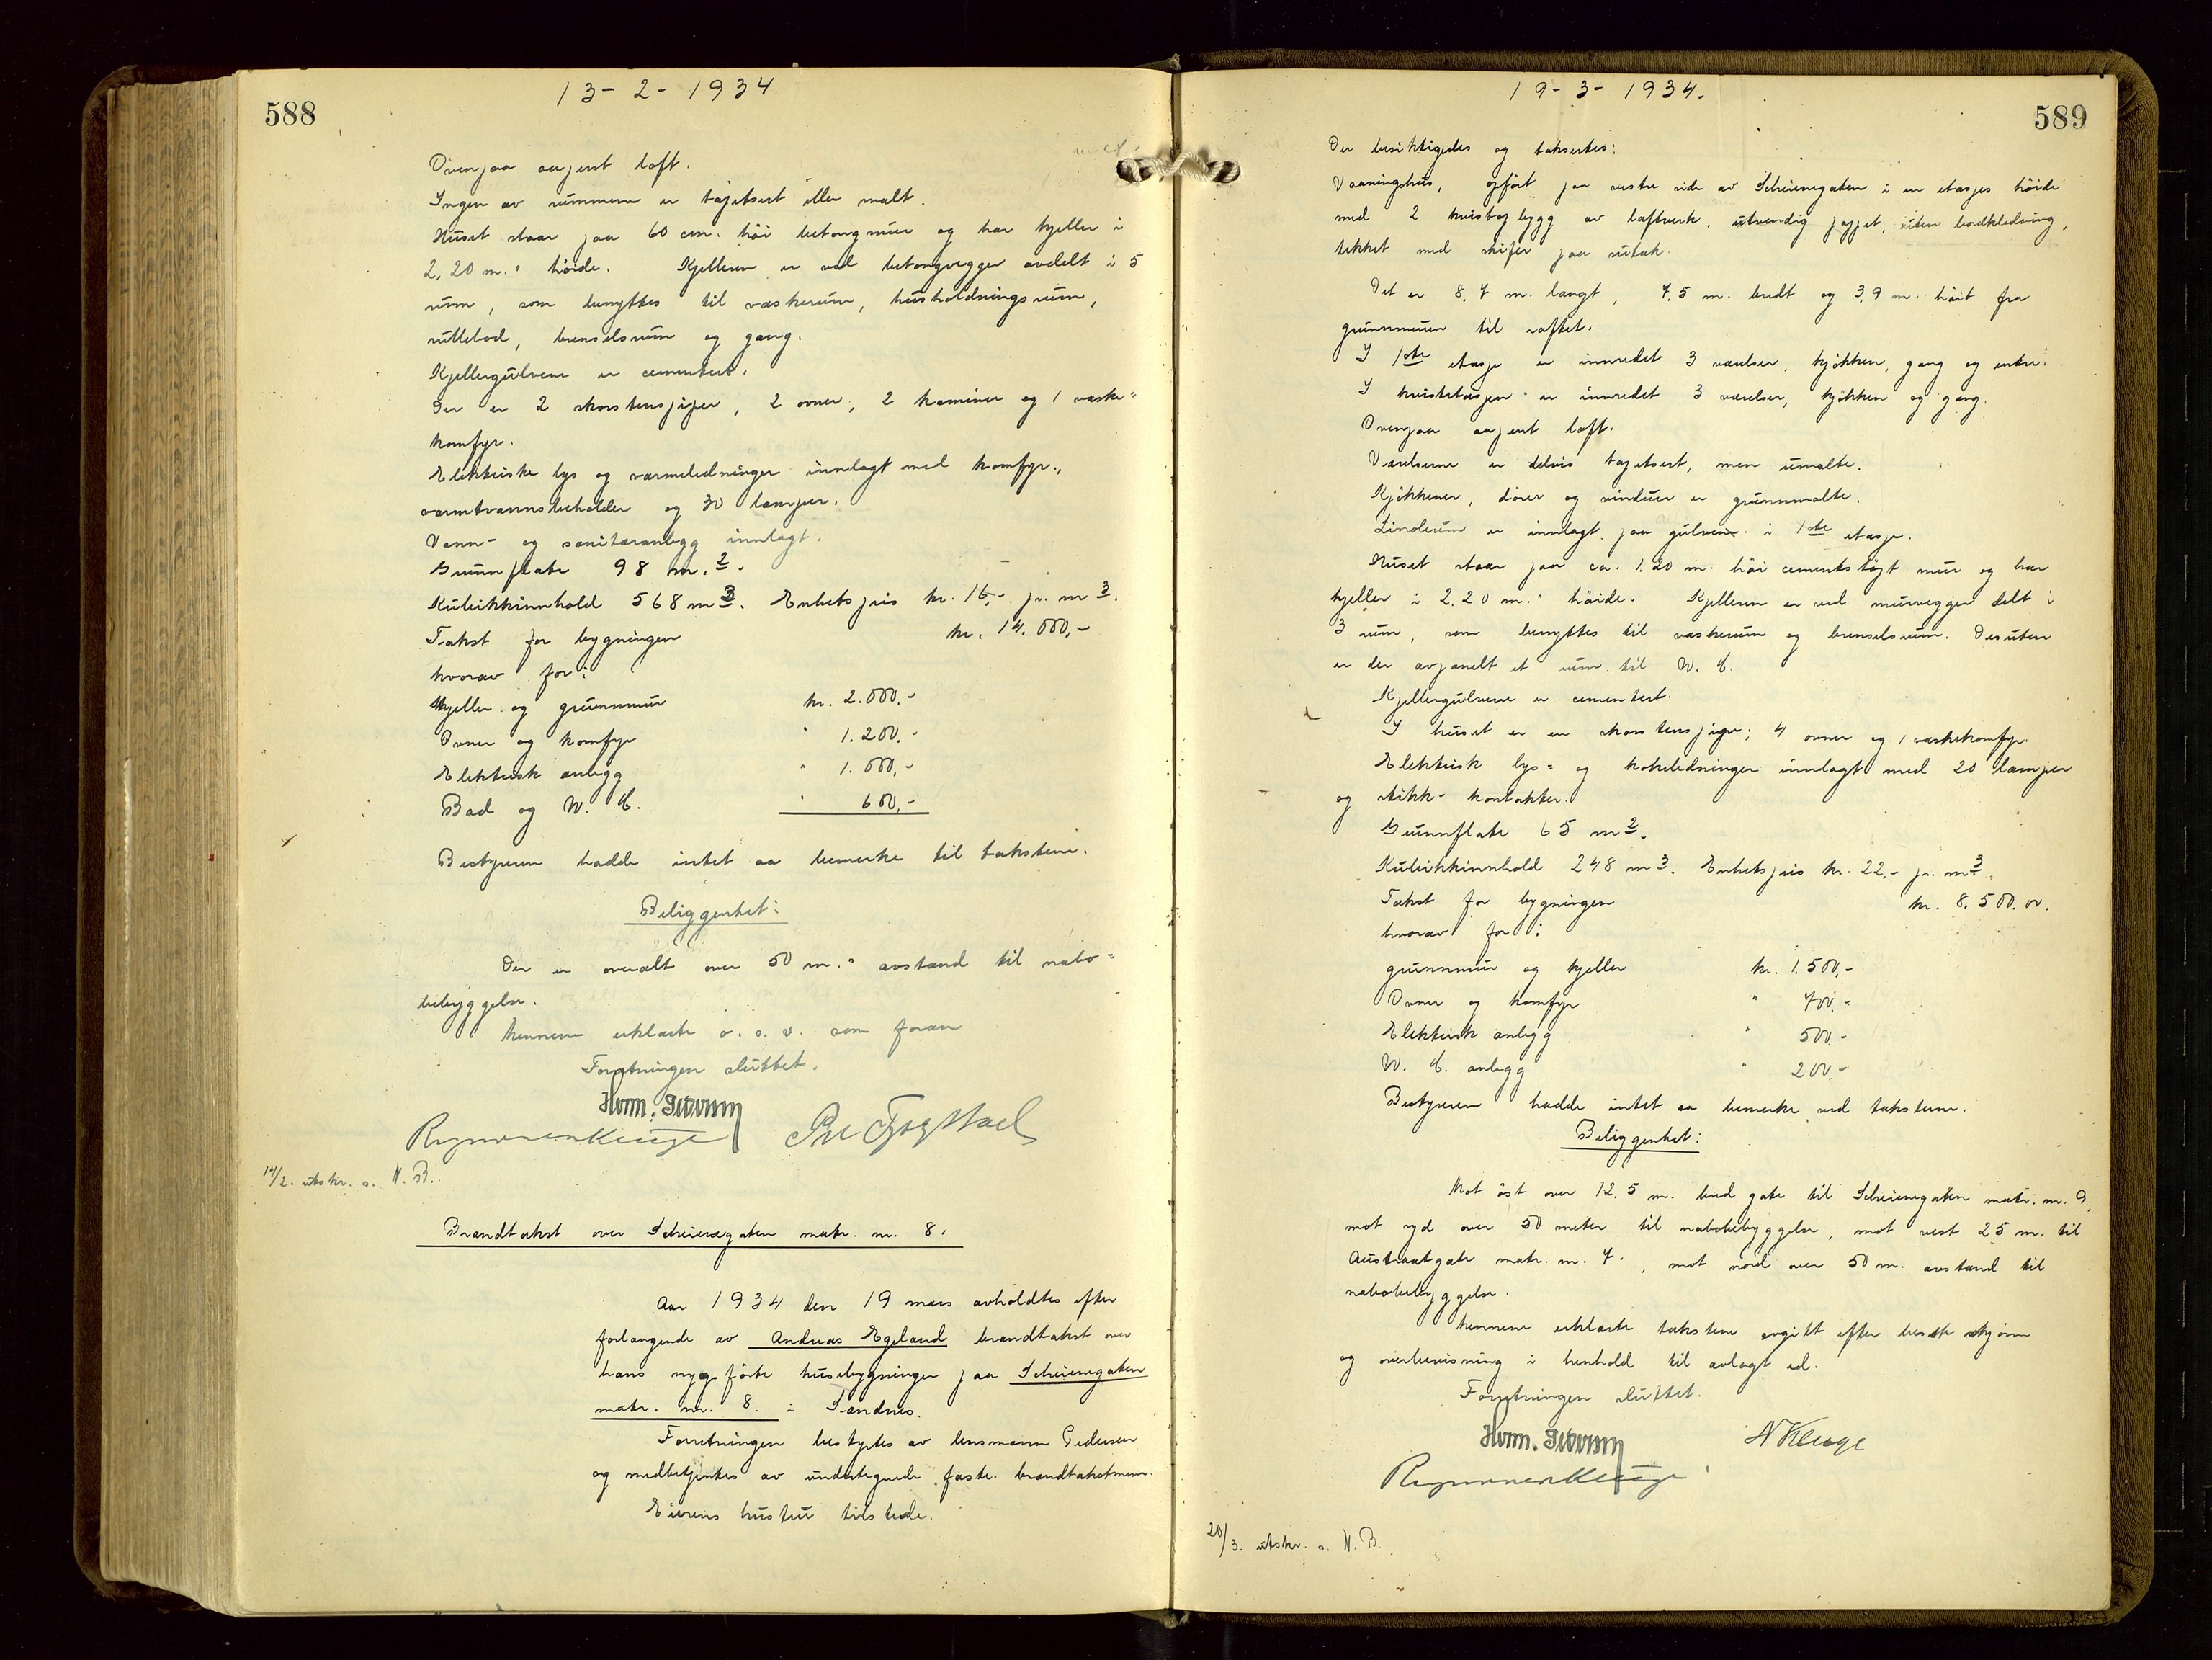 588
13-2-1934
Ovenpaa aapent loft.
Ingen av rummene er tapetsert eller malt.
Huset staar paa 60 cm. høi betongmur og har kjeller i
2,20 m.s høide. Kjelleren er ved betongvegger avdelt i 5
rum, som benyttes til vaskerum, husholdningsrum,
rullebod, brenselsrum og gang.
Kjellergulvene er cementert.
Der er 2 skorstenspiper, 2 ovner, 2 kaminer og 1 vaske=
komfyr.
Elektriske lys og varmeledninger innlagt med komfyr,
varmtvannsbeholder og 30 lamper.
Vann- og sanitæranlegg innlagt.
Grunnflate 98 m.2.
Kubikkinnhold 568 m3. Enhetspris kr. 16,- pr. m3.
Takst for bygningen kr. 14.000,-
hvorav for:
Kjeller og grunnmur kr. 2.000.-
Ovner og komfyr " 1.200.-
Elektrisk anlegg " 1.000,-
Bad og W. C. " 600,-
Bestyreren hadde intet aa bemerke til takstene.
Beliggenhet:
Der er overalt over 50 m.s avstand til nabo=
bebyggelse.
Mennene erklærte o. s. v. som foran
Forretningen sluttet.
14/2. utskr. s. N. B.
Brandtakst over Scheiesgaten matr. nr. 8.
Aar 1934 den 19 mars avholdtes efter
forlangende av Andreas Egeland brandtakst over
hans nyopførte husebygninger paa Scheiesgaten
matr. nr. 8. i Sandnes.
Forretningen bestyrtes av lensmann Pedersen
og medbetjentes av undertegnede faste brandtakstmenn.
Eierens hustru tilstede.
589
19-3-1934.
Der besiktigedes og taksertes:
Vaaningshus, opført paa vestre side av Scheiesgaten i en etasjes høide
med 2 kvistopbygg av laftverk, utvendig pappet, uten bordkledning,
tekket med skifer paa sutak.
Det er 8,7 m. langt, 7,5 m. bredt og 3,9 m. høit fra
grunnmuren til raftet.
I 1ste etasje er innredet 3 værelser, kjøkken, gang og entre.
I kvistetasjen er innredet 3 værelser, kjøkken og gang.
Ovenpaa aapent loft.
Værelsene er delvis tapetsert, men umalte.
Kjøkkener, dører og vinduer er grunnmalte.
Linoleum er innlagt paa gulvene i 1ste etasje.
Huset staar paa ca. 1.20 m. høi cementstøpt mur og har
kjeller i 2.20 m.s høide. Kjelleren er ved murvegger delt i
3 rum, som benyttes til vaskerum og brenselsrum. Desuten
er der avpanelt et rum til W. C.
Kjellergulvene er cementert.
I huset er en skorstenspipe; 4 ovner og 1 vaskekomfyr.
Elektrisk lys= og kokeledninger innlagt med 20 lamper
og stikk-kontakter.
Grunnflate 65 m2.
Kubikkinnhold 248 m3. Enhetspris kr. 22,- pr. m3.
Takst for bygningen kr. 8.500.00.
hvorav for:
grunnmur og kjeller kr. 1.500,-
Ovner og komfyr " 700,-
Elektrisk anlegg " 500.-
W. C. anlegg " 200.-
Bestyreren hadde intet aa bemerke ved takstene.
Beliggenhet:
Mot øst over 12,5 m. bred gate til Scheiesgaten matr. nr. 9,
mot syd over 50 meter til nabobebyggelse, mot vest 25 m. til
Austraatgate matr. nr. 7., mot nord over 50 m. avstand til
nabobebyggelse.
Mennene erklærte takstene avgitt efter beste skjønn
og overbevisning i henhold til avlagt ed.
Forretningen sluttet.
N Kluge
20/3. utskr. s. N. B.